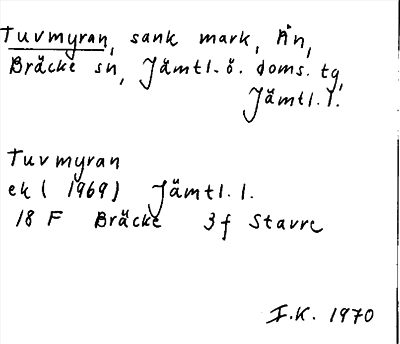 Tuvmyran, sank mark, Ån,
Bräcke sn, Jämtl. ö. doms. tg,
Jämtl. l.
Tuvmyran
ek (1969) Jämtl. l.
18 F Bräcke 3f Stavre
I.K. 1970